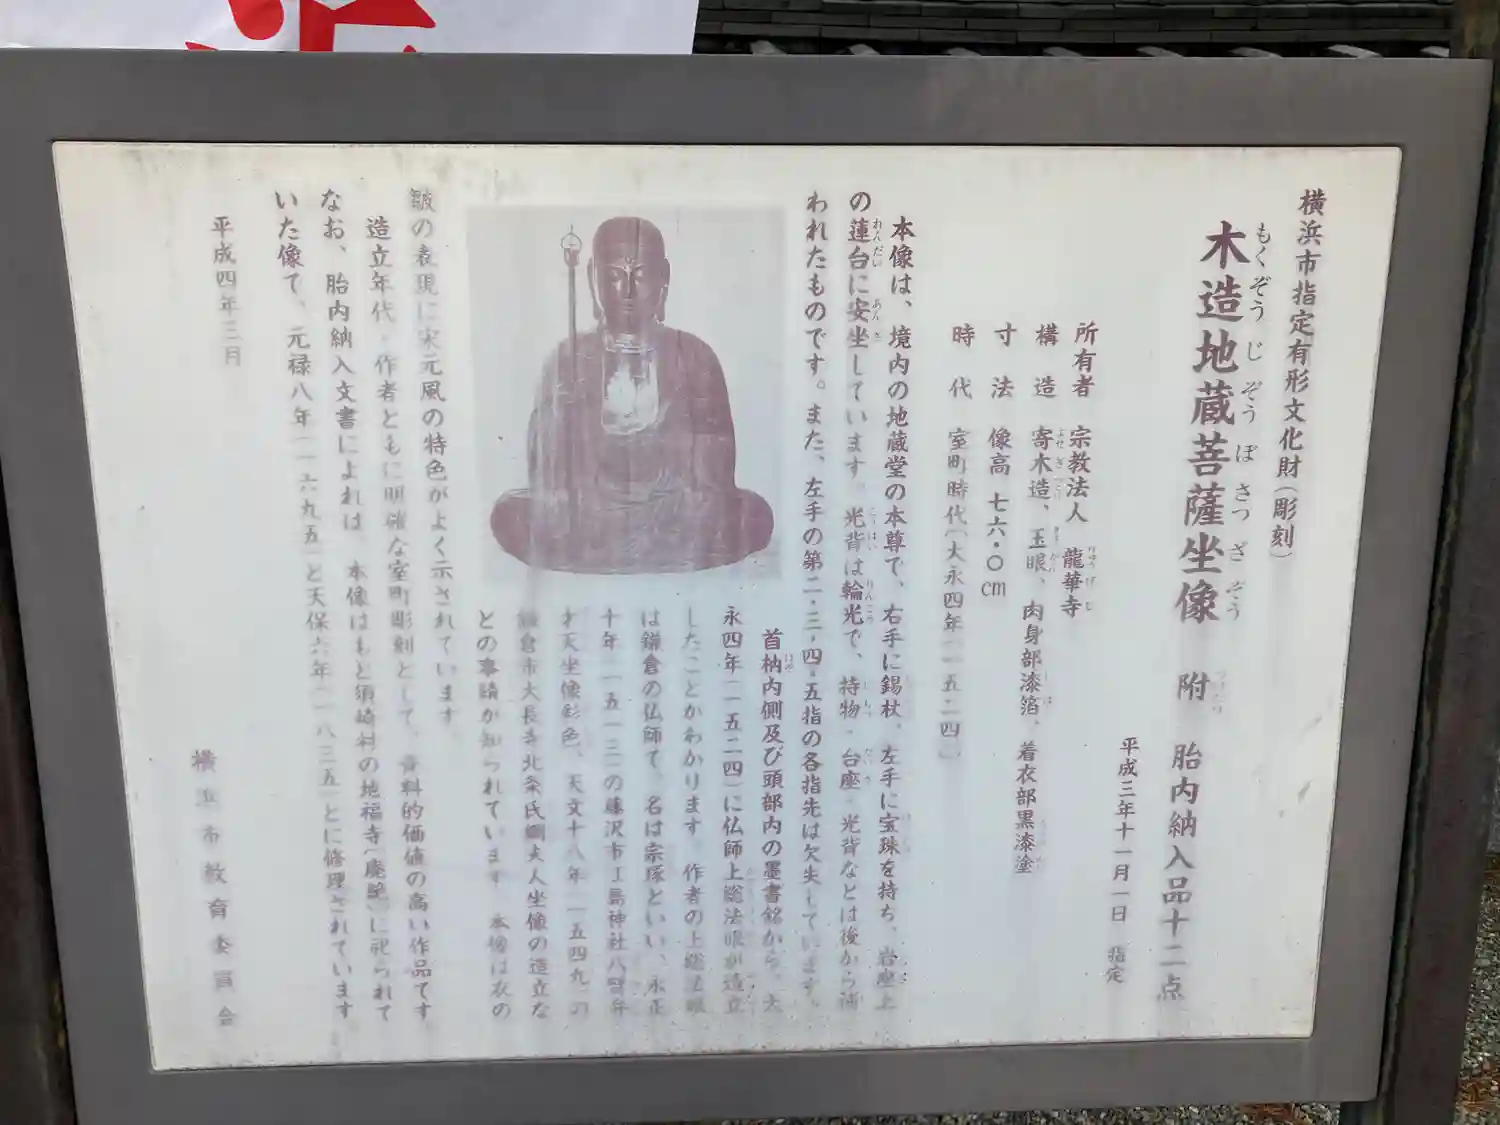 横浜市指定有形文化財(彫刻)
木造地蔵菩薩坐像 附 胎内納入品十二点
もくぞうじぞうぼさつざぞう
平成三年十一月一日 指定
所有者 宗教法人 龍華寺
構造 寄木造、玉眼、肉身部漆箔、着衣部黒漆塗
寸法 像高 七六・〇cm
時代 室町時代(大永四年(一五二四)
本像は、境内の地蔵堂の本尊で、右手に錫杖、左手に宝珠を持ち、岩座上
の蓮台に安坐しています。光背は輪光で、持物・台座・光背などは後から補
われたものです。また、左手の第二・三・四・五指の各指先は欠失しています。
首枘内側及び頭部内の墨書銘から、大
永四年(一五二四)に仏師上総法眼が造立
したことがわかります。作者の上総法眼
は鎌倉の仏師で、名は宗琢といい、永正
十年(一五一三)の藤沢市江島神社八臂弁
才天坐像彩色、天文十八年(一五四九)の
鎌倉市大長寺北条氏綱夫人坐像の造立な
どの事績が知られています。本像は衣の
皺の表現に宋元風の特色がよく示されています。
造立年代・作者ともに明確な室町彫刻として、資料的価値の高い作品です。
なお、胎内納入文書によれば、本像はもと須崎村の地福寺(廃絶)に祀られて
いた像で、元禄八年(一六九五)と天保六年(一八三五)とに修理されています。
平成四年三月
横浜市教育委員会